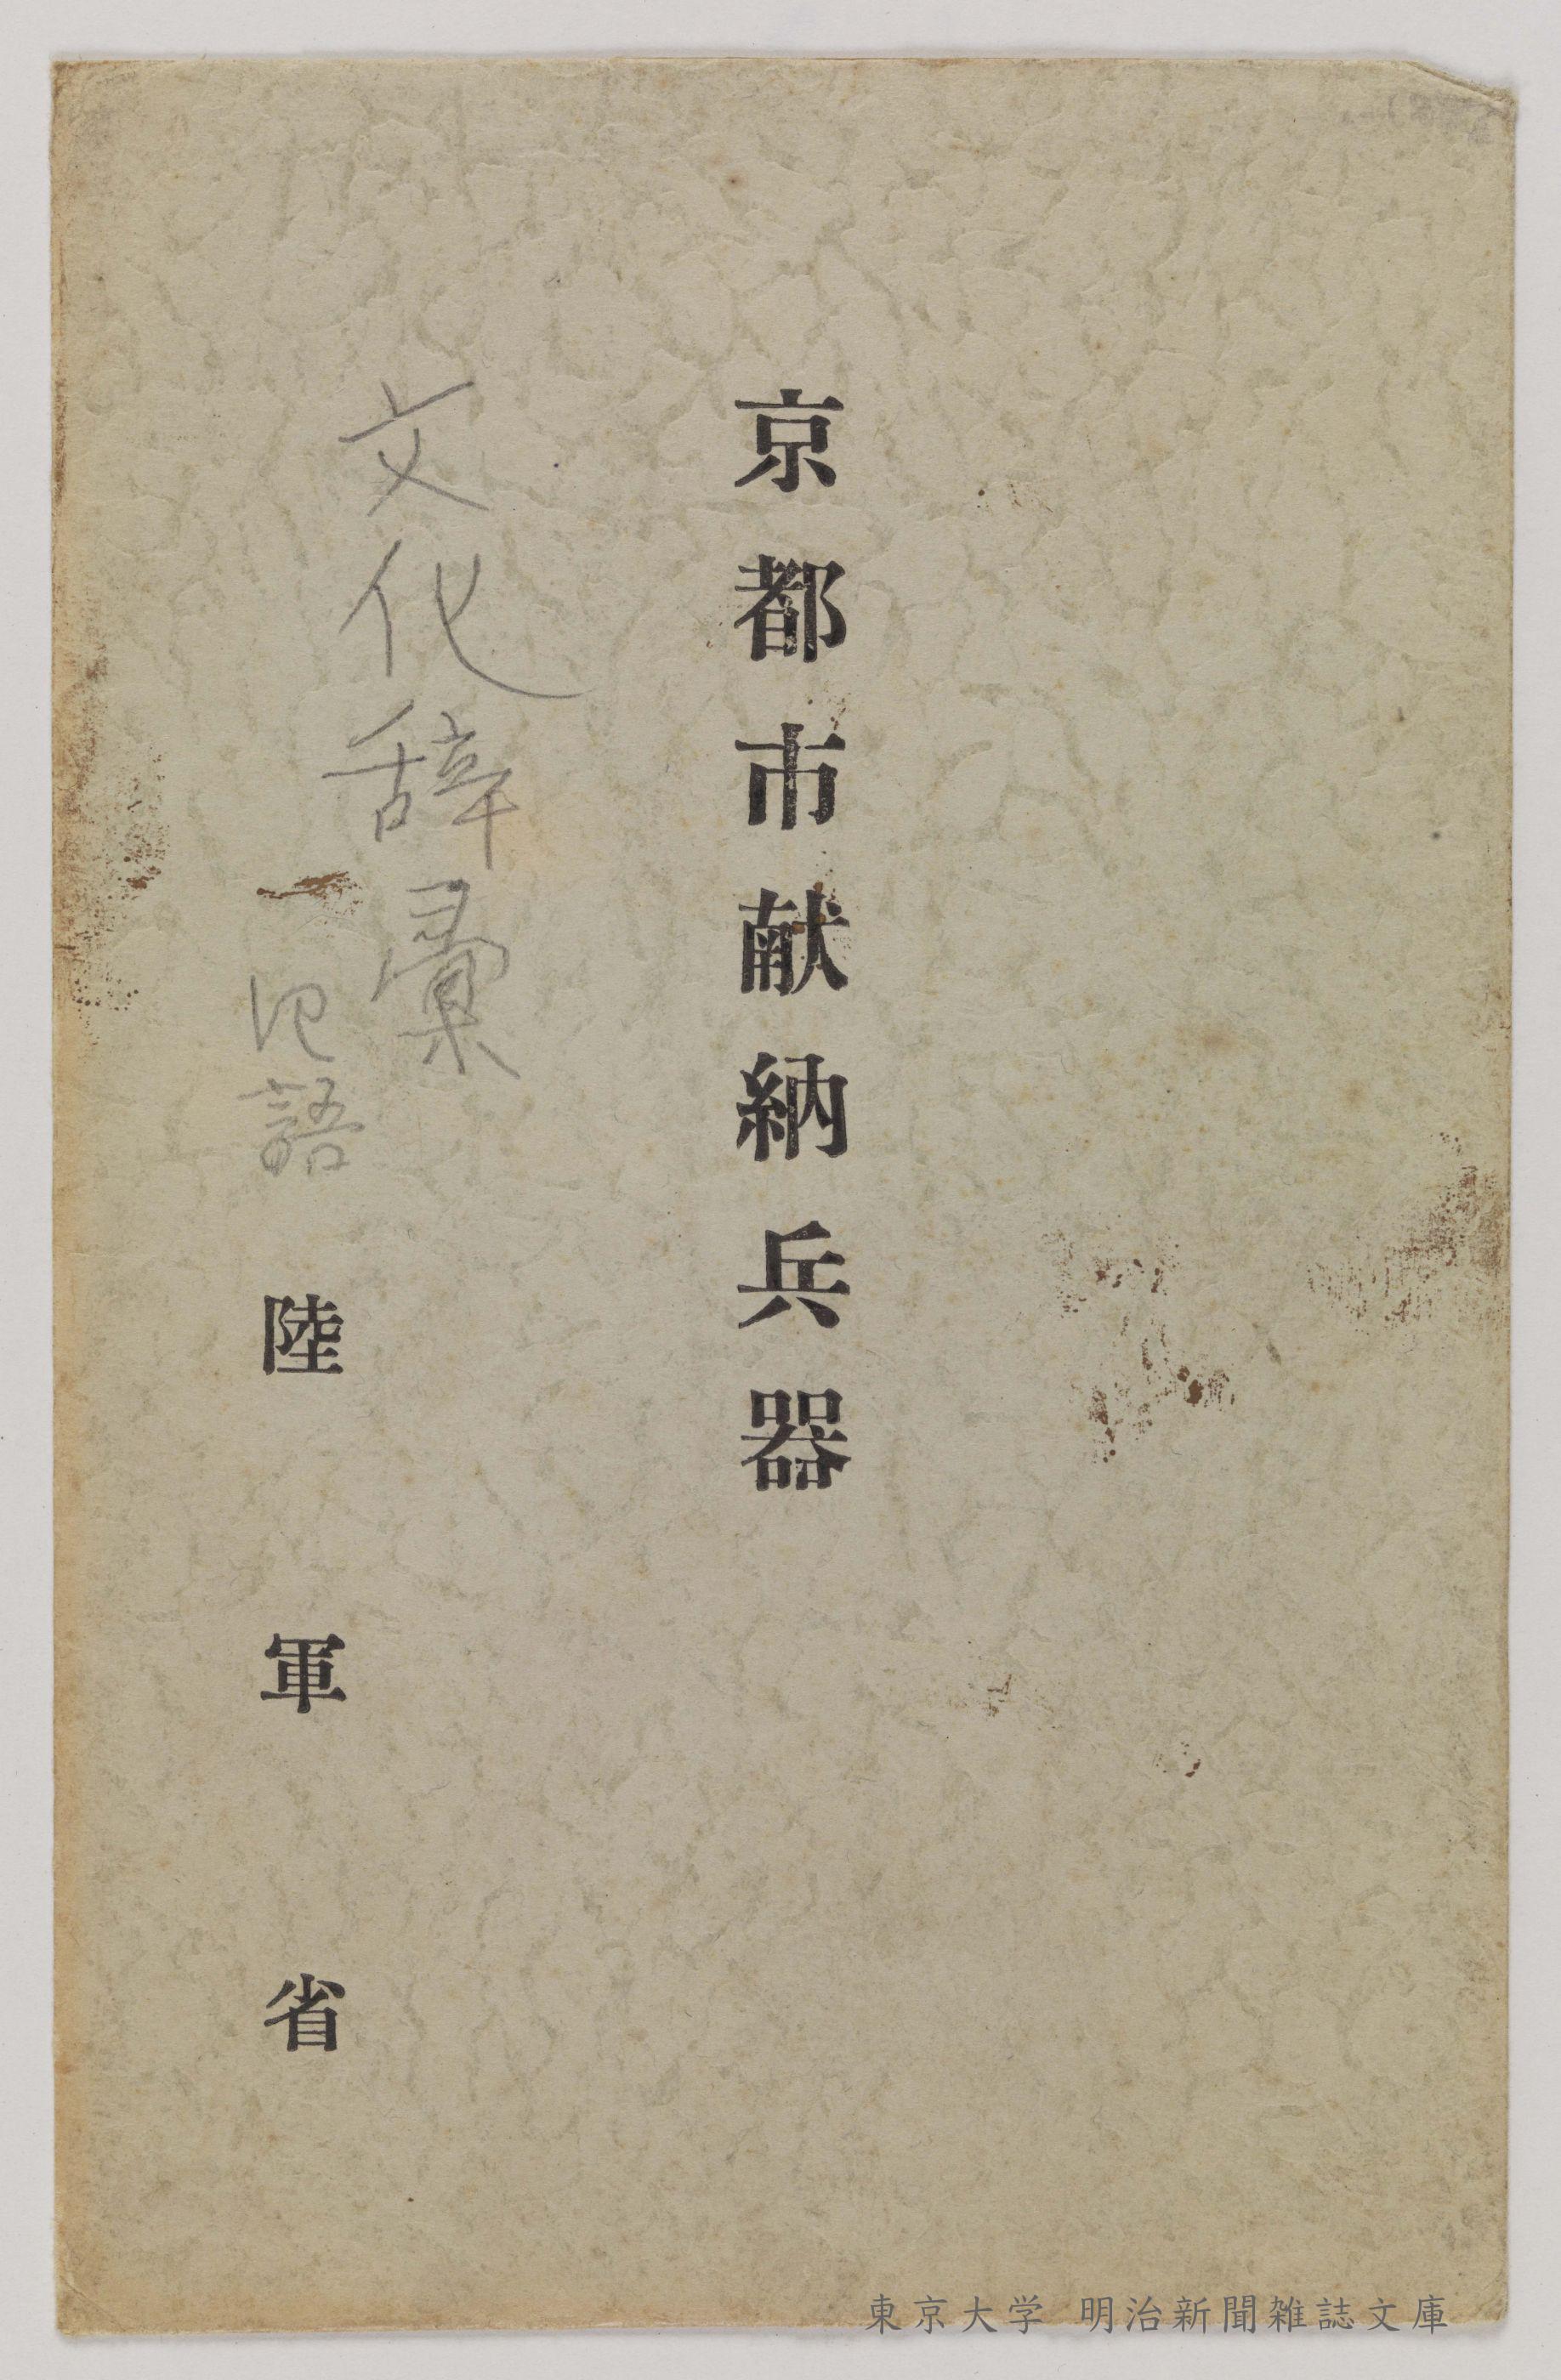 京都市献納兵器
文化辞彙
旧語
陸軍省
東京大学 明治新聞雑誌文庫